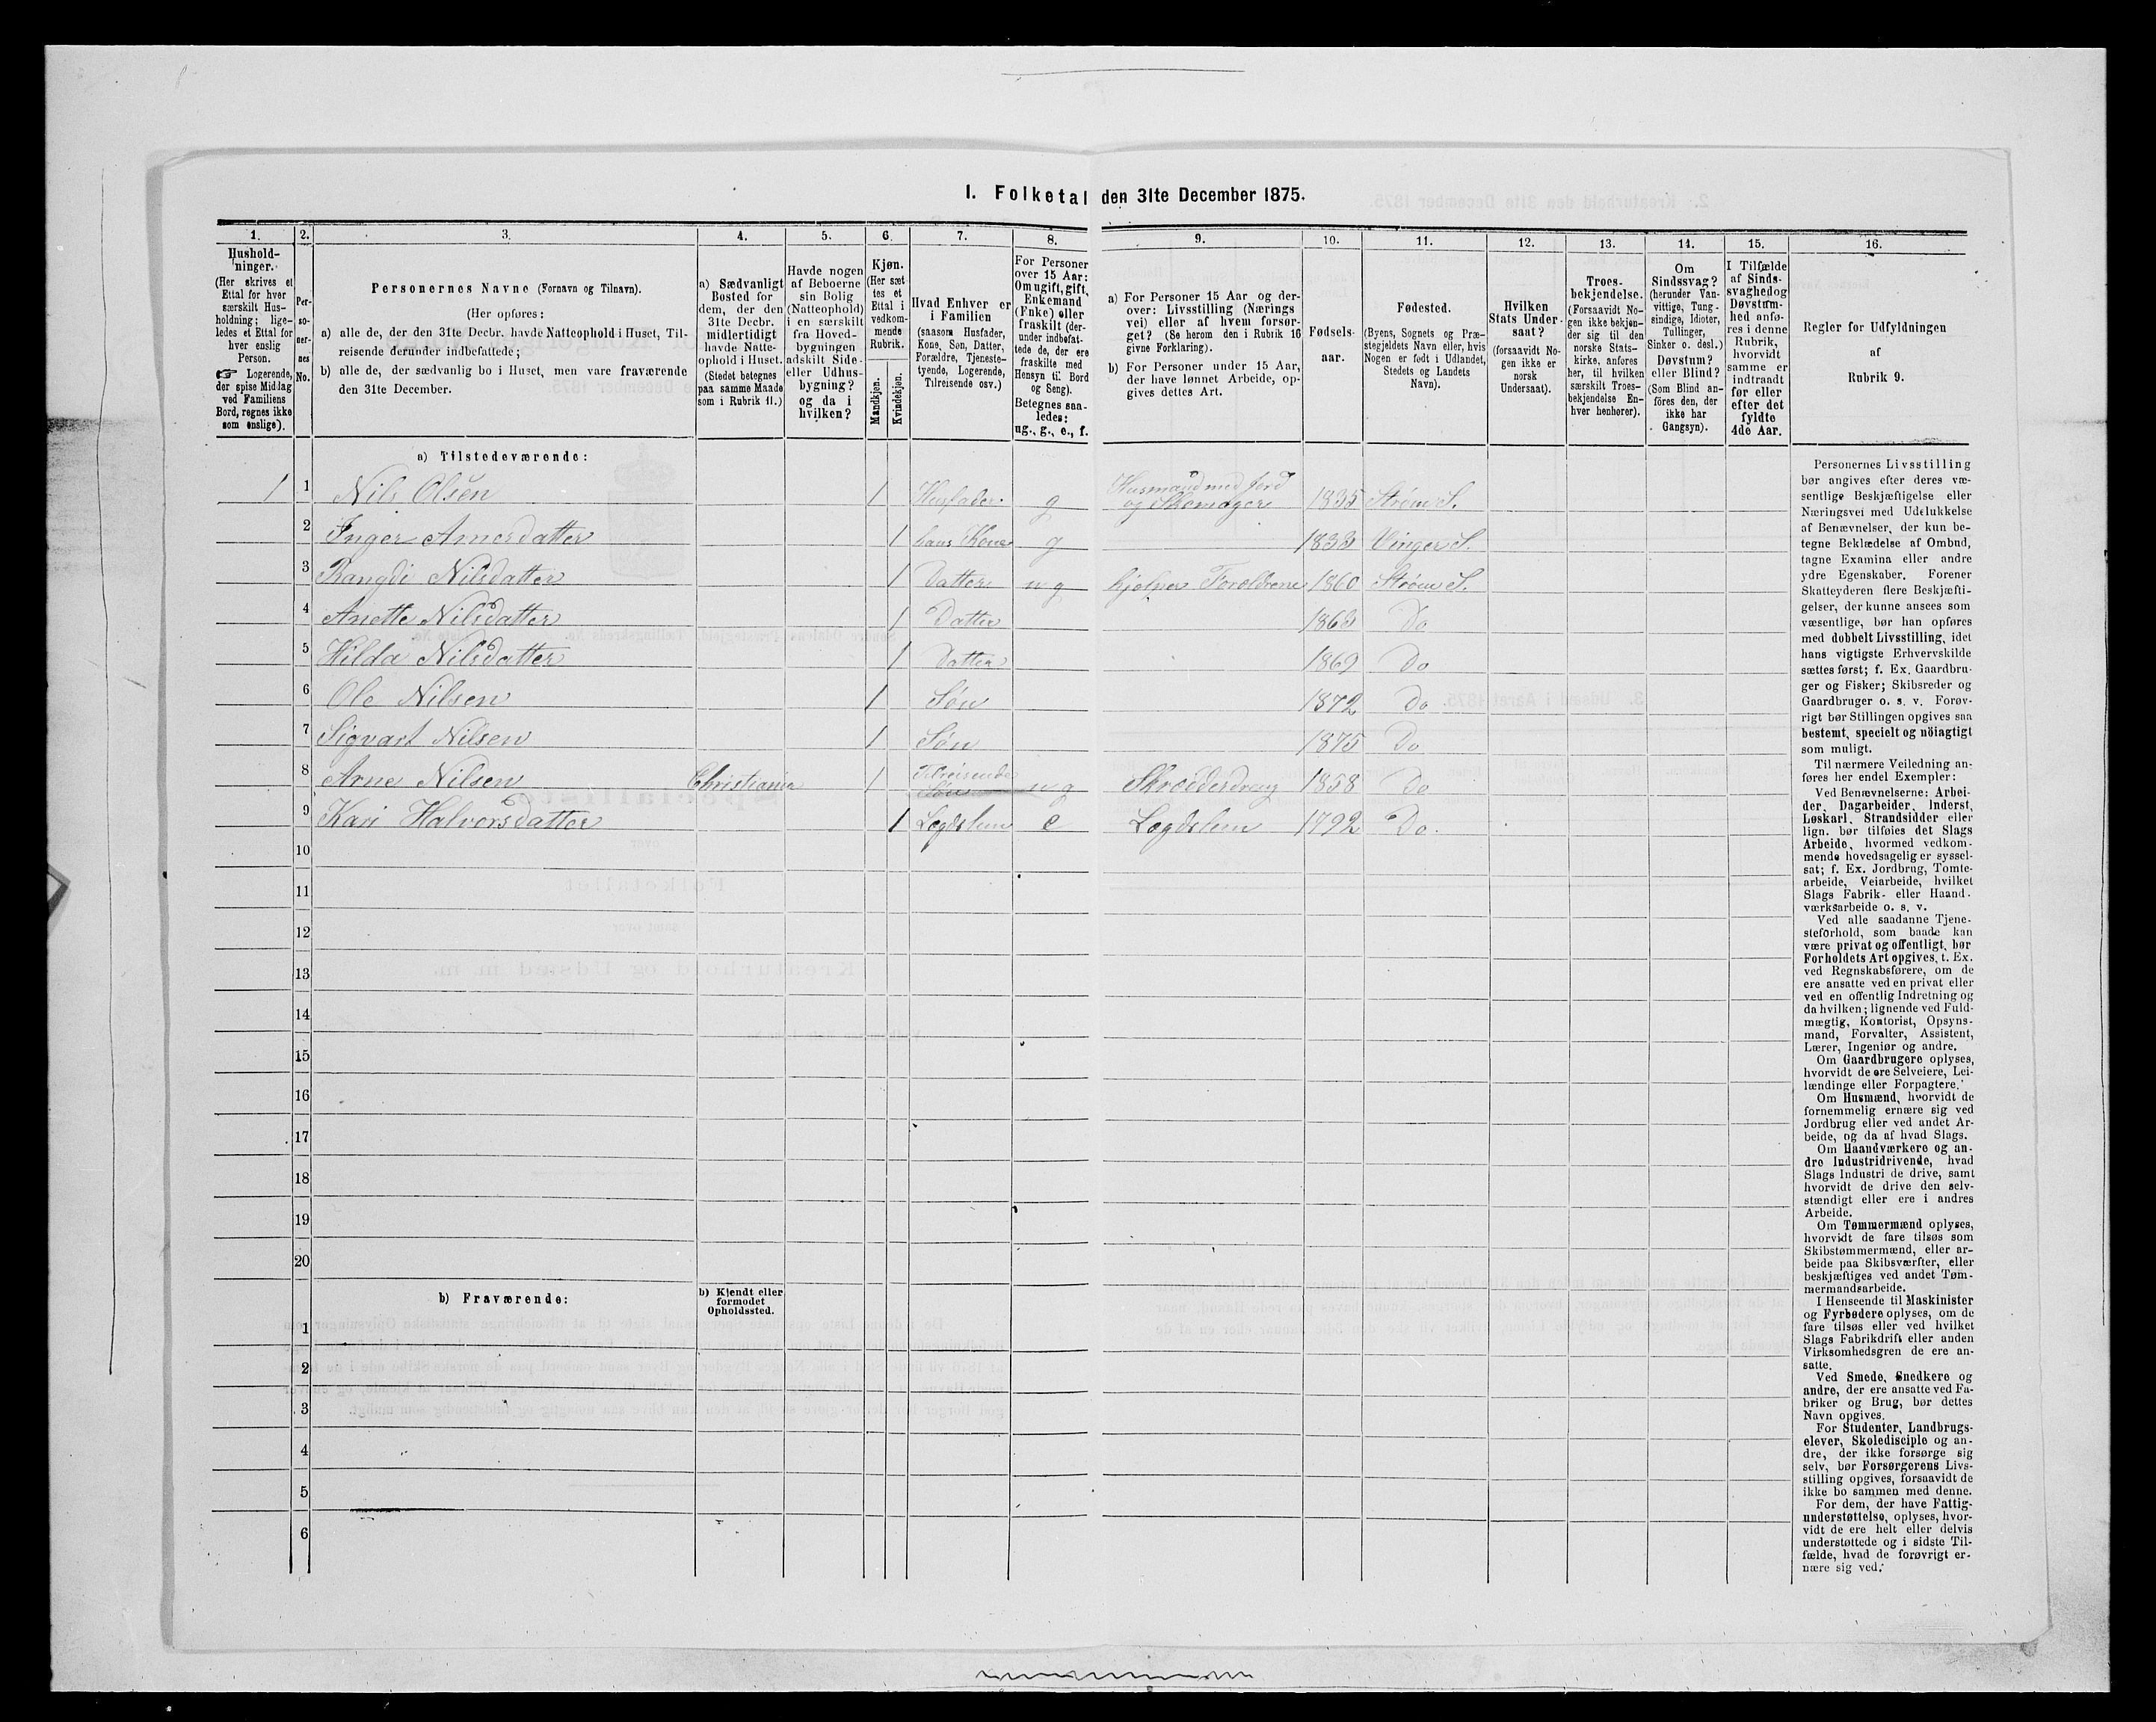 I. Folketal den 31te December 1875.
1. 2. 3. 4. 5. 6. 7. 8. 9. 10. 11. 12. 13. 14. 15. 16.
Hushold-
ninger.
(Her skrives et
Ettal for hver
særskilt Hus-
holdning; lige-
ledes et Ettal for
hver enslig
Person.
☞ Logerende,
der spise Middag
ved Familiens
Bord, regnes ikke
som enslige).
Per-
so-
ner-
nes
No.
Personernes Navne (Fornavn og Tilnavn).
(Her opføres:
a) alle de, der den 31te Decbr. havde Natteophold i Huset, Til-
reisende derunder indbefattede;
b) alle de, der sædvanlig bo i Huset, men vare fraværende
den 31te December.
a) Sædvanligt
Bosted for
dem, der den
31te Decbr.
midlertidigt
havde Natte-
ophold i Huset.
(Stedet betegnes
paa samme Maade
som i Rubrik 11.)
Havde nogen
af Beboerne
sin Bolig
(Natteophold)
i en særskilt
fra Hoved-
bygningen
adskilt Side-
eller Udhus-
bygning?
og da i
hvilken?
Kjøn.
(Her sæt
tes et
Ettal i
vedkom-
mende
Rubrik.
Mandkjøn.
Kvindekjøn.
Hvad Enhver er
i Familien
(saasom Husfader,
Kone, Søn, Datter,
Forældre, Tjeneste-
tyende, Logerende,
Tilreisende osv.)
For Personer
over 15 Aar:
Om ugift, gift,
Enkemand
(Enke) eller
fraskilt (der-
under indbefat-
tede de, der ere
fraskilte med
Hensyn til Bord
og Seng).
Betegnes saa-
ledes:
ug., g., e., f.
a) For Personer 15 Aar og der-
over: Livsstilling (Nærings
vei) eller af hvem forsør-
get? (Se herom den i Rubrik 16
givne Forklaring).
b) For Personer under 15 Aar,
der have lønnet Arbeide, op-
gives dettes Art.
Fødsels-
aar.
Fødested.
(Byens, Sognets og Præ-
stegjeldets Navn eller, hvis
Nogen er født i Udlandet,
Stedets og Landets
Navn).
Hvilken
Stats Under-
saat?
(forsaavidt No-
gen ikke er
norsk
Undersaat).
Troes-
bekjendelse.
(Forsaavidt No-
gen ikke bekjen-
der sig til den
norske Stats-
kirke, anføres
her, til hvilken
særskilt Troes-
bekjendelse En-
hver henhører).
Om
Sindssvag?
(herunder Van-
vittige, Tung-
sindige, Idioter,
Tullinger,
Sinker o. desl.)
Døvstum?
eller Blind?
(Som Blind an-
föres den, der
ikke har
Gangsyn).
I Tilfælde
af Sinds-
svaghedog
Døvstum-
hed anfø-
res i denne
Rubrik,
hvorvidt
samme er
indtraadt
før eller
efter det
fyldte
4de Aar.
Regler for Udfyldningen
af
Rubrik 9.
a) Tilstedeværende:
1 1 Nils Olsen 1 Husfader g Husmand med Jord og Skomager 1835 Strøm S.
2 Inger Arnesdatter 1 hans Kone g 1833 Vinger S.
3 Rangdi Nilsdatter 1 Datter ug hjelper Forældrene 1860 Strøm S.
4 Anette Nilsdatter 1 Datter 1863 Do
5 Hilda Nilsdatter 1 Datter 1869 Do
6 Ole Nilsen 1 Søn 1872 Do
7 Sigvart Nilsen 1 Søn 1875 Do
8 Arne Nilsen Christiania 1 Tilreisende Søn ug Skrædderdreng 1858 Do
9 Kari Halvorsdatter 1 Lægdslem e Lægdslem 1792 Do.
10
11
12
13
14
15
16
17
18
19
20
b) Fraværende:
b) Kjendt eller
formodet
Opholdssted.
1
2
3
4
5
6
Personernes Livsstilling
bør angives efter deres væ-
sentlige Beskjæftigelse eller
Næringsvei med Udelukkelse
af Benævnelser, der kun be-
tegne Beklædelse af Ombud,
tagne Examina eller andre
ydre Egenskaber. Forener
Skatteyderen flere Beskjæfti-
gelser, der kunne ansees som
væsentlige, bør han opføres
med dobbelt Livsstilling, idet
hans vigtigste Erhvervskilde
sættes først; f. Ex. Gaardbru-
ger og Fisker; Skibsreder og
Gaardbruger o. s. v. Forøv-
rigt bør Stillingen opgives saa
bestemt, specielt og nöiagtigt
som muligt.
Til nærmere Veiledning an-
føres her endel Exempler:
Ved Benævnelserne: Arbei-
der, Dagarbeider, Inderst,
Løskarl, Strandsidder eller
lign. bør tilføies det Slags
Arbeide, hvormed vedkom-
mende hovedsagelig er syssel-
sat; f. Ex. Jordbrug, Tomte-
arbeide, Veiarbeide, hvilket
Slags Fabrik- eller Haand-
værksarbeide o. s. v.
Ved alle saadanne Tjene-
steforhold, som baade kan
være privat og offentligt, bør
Forholdets Art opgives, t. Ex.
ved Regnskabsførere, om de
ere ansatte ved en privat eller
ved en offentlig Indretning og
da hvilken; lignende ved Fuld-
mægtig, Kontorist, Opsyns-
mand, Forvalter, Assistent,
Lærer, Ingeniør og andre.
Om Gaardbrugere oplyses,
hvorvidt de ere Selveiere, Lei-
lændinge eller Forpagtere.
Om Husmænd, hvorvidt de
fornemmelig ernære sig ved
Jordbrug eller ved andet Ar-
beide, og da af hvad Slags.
Om Haandværkere og an-
dre Industridrivende, hvad
Slags Industri de drive, samt
hvorvidt de drive den selv-
stændigt eller ere i andres
Arbeide.
Om Tømmermænd oplyses,
hvorvidt de fare tilsøs som
Skibstømmermænd, eller ar-
beide paa Skibsværfter, eller
beskjæftiges ved andet Tøm-
mermandsarbeide.
I Henseende til Maskinister
og Fyrbødere oplyses, om de
fare tilsøs eller ved hvilket
Slags Fabrikdrift eller anden
Virksomhedsgren de ere an-
satte.
Ved Smede, Snedkere og
andre, der ere ansatte ved Fa-
briker og Brug, bør dettes
Navn opgives.
For Studenter, Landbrugs-
elever, Skoledisciple og an-
dre, der ikke forsørge sig
selv, bør Forsørgerens Livs-
stilling opgives, forsaavidt de
ikke bo sammen med denne.
For dem, der have Fattig-
understøttelse, oplyses, hvor-
vidt de ere helt eller delvis
understøttede og i sidste Til-
fælde, hvad de forøvrigt er-
nære sig ved.